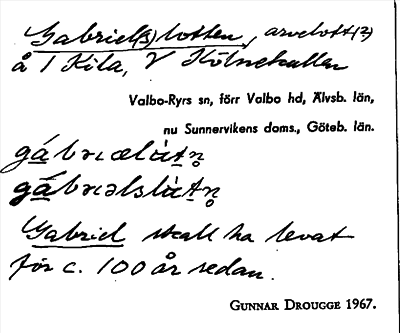 Gabriel(s)lotten, arvelott(?)
å 1 Kila, V Kölnekullen
Valbo-Ryrs sn, förr Valbo hd, Älvsb. län,
nu Sunnervikens doms., Göteb. län.
gábrɪəlɑ̀tn̥
gábrɪəlslɑ̀tn̥
Gabriel skall ha levat
för c. 100 år sedan.
GUNNAR DROUGGE 1967.